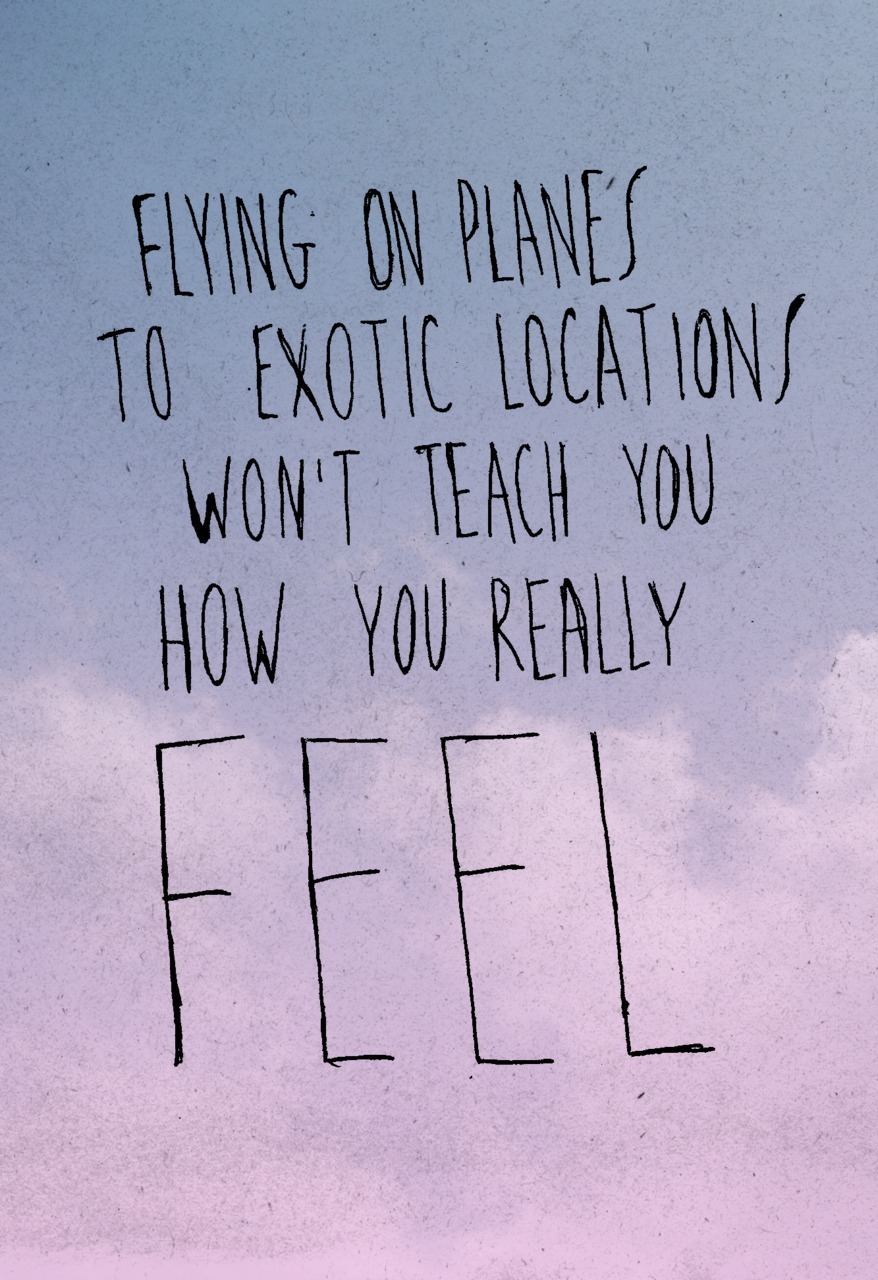 FLYING ON PLANES
TO EXOTIC LOCATIONS
WON'T TEACH YOU
HOW YOU REALLY
FEEL